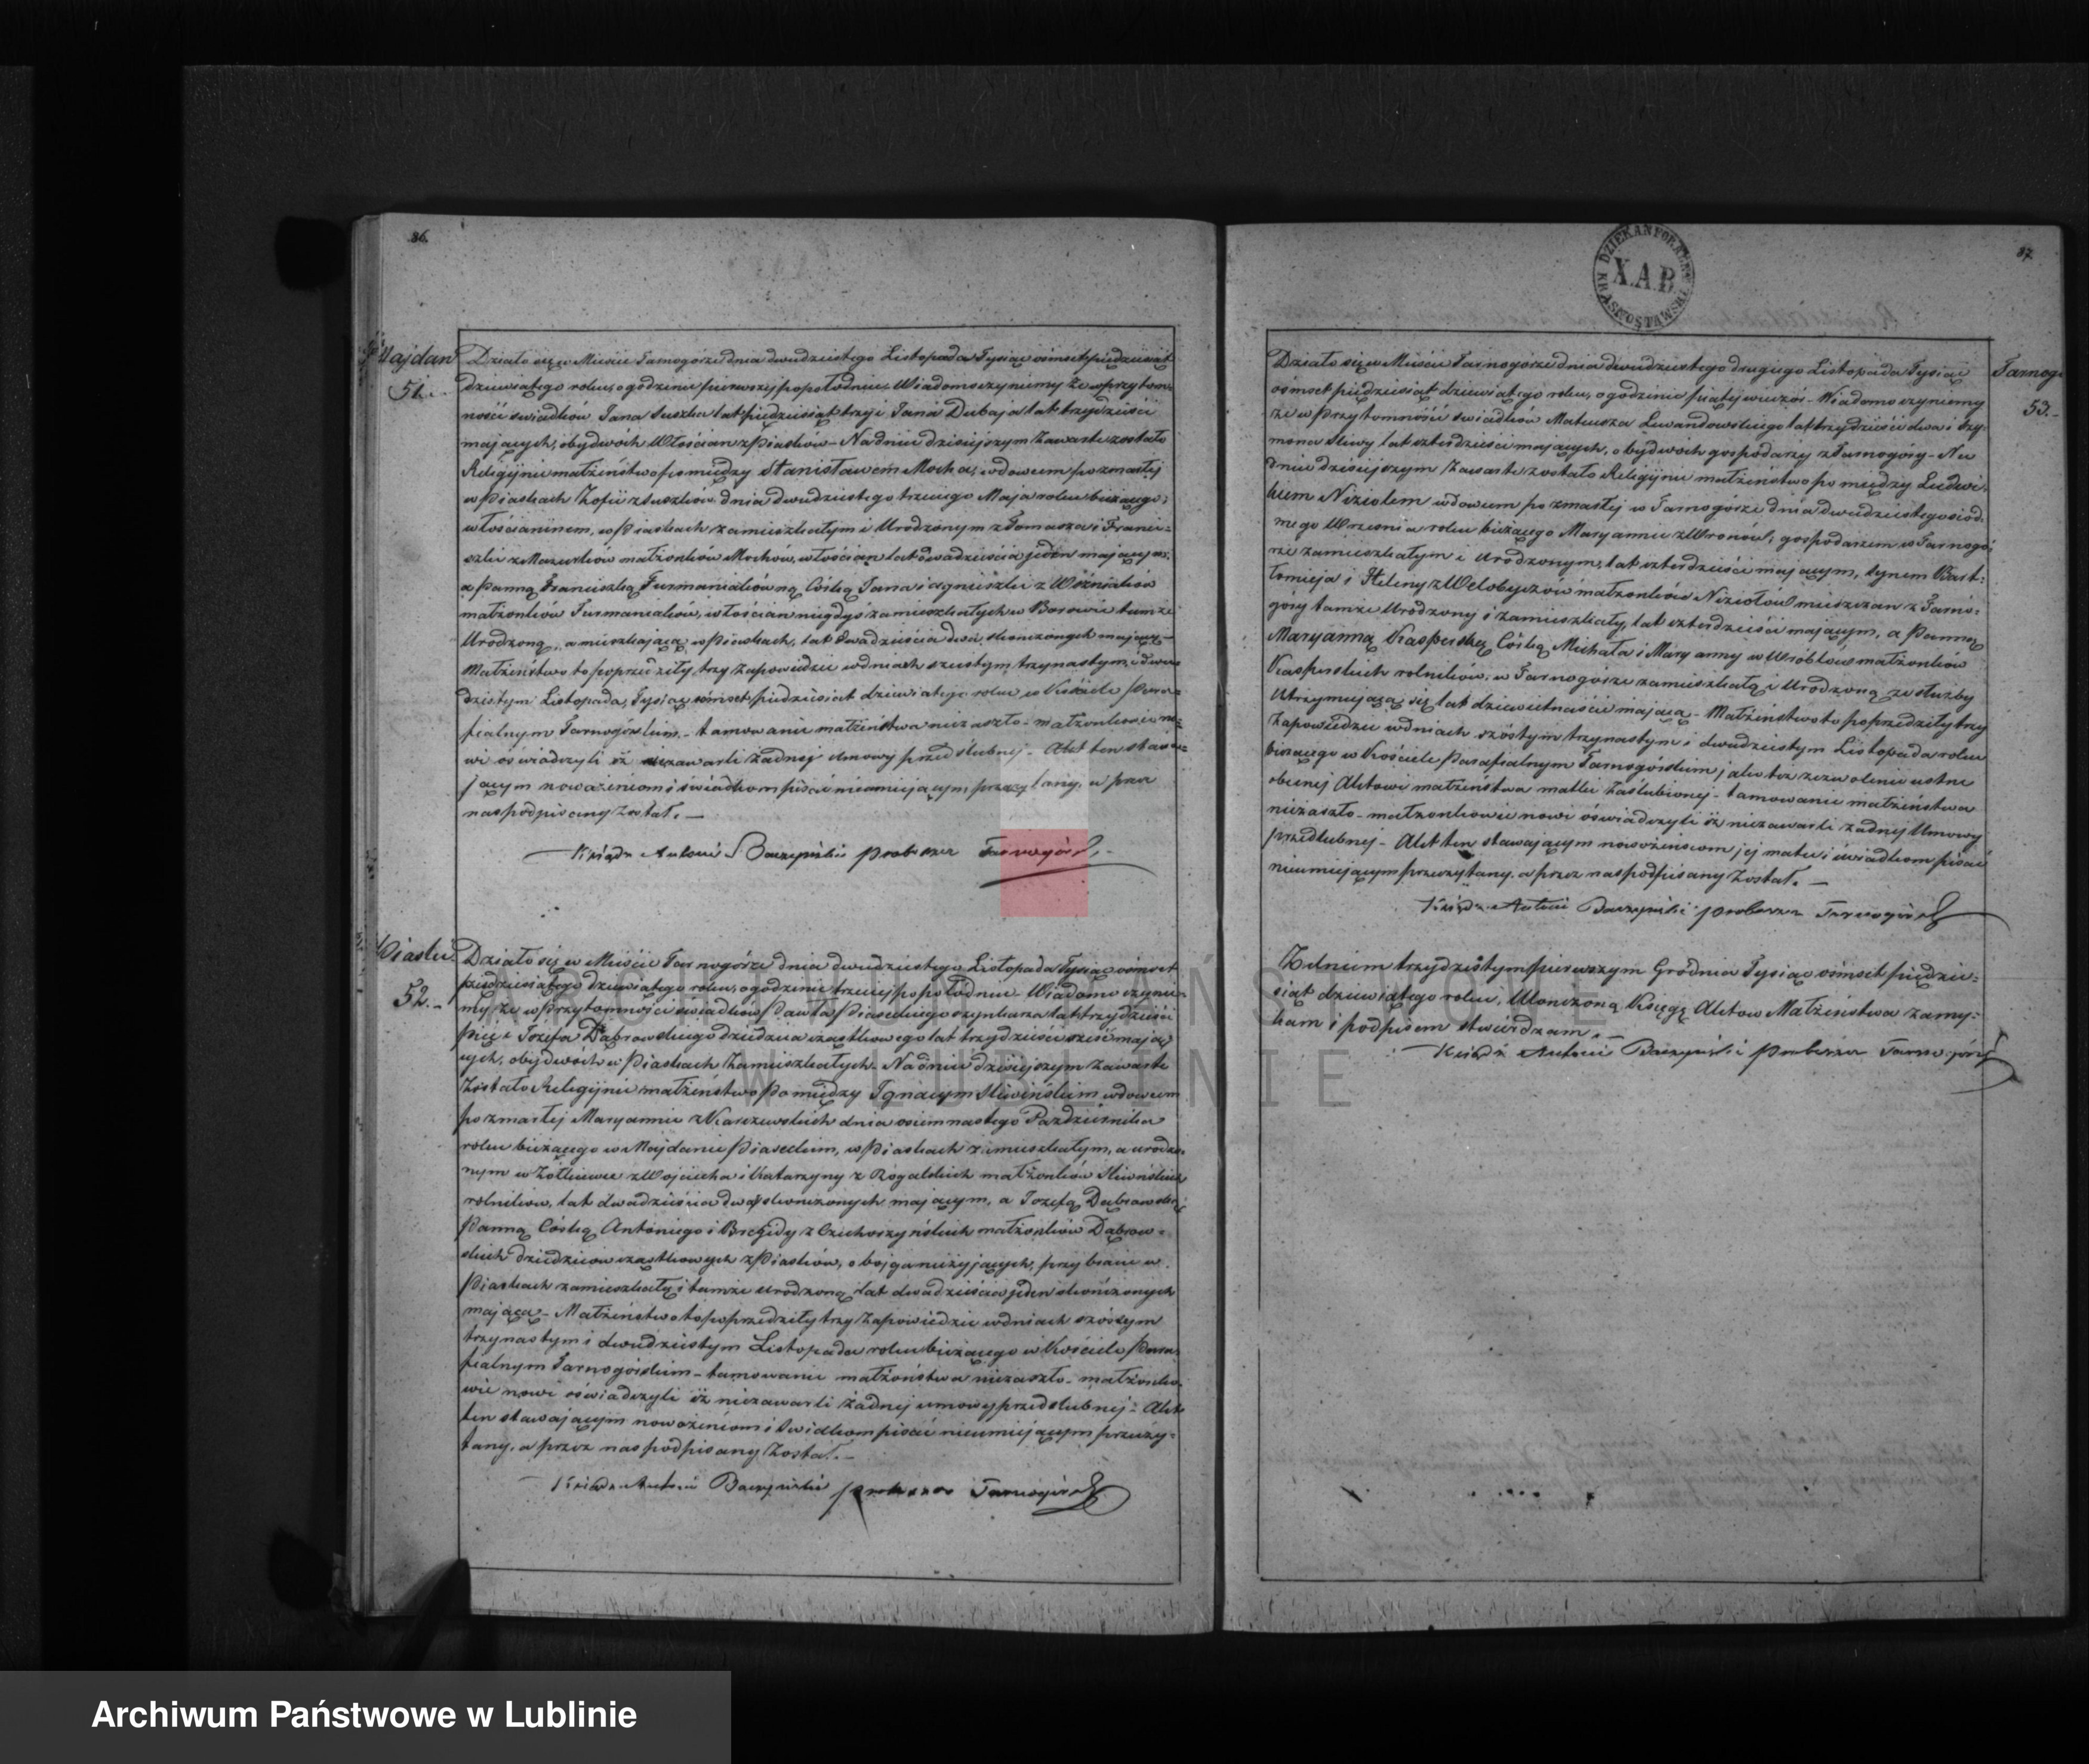 86.
Majdan
51.
Działo się w Mieście Tarnogórze dnia dwudziestego Listopada Tysiąc ośmset piędziesiąt
dziewiątego roku, o godzinie pierwszej po południu. Wiadomo czynimy że w przytom-
ności świadków Jana Suszka lat piędziesiąt trzy i Jana Dubaja lat trzydzieści
mających, obydwóch Włościan z Piasków – Na dniu dzisiejszym zawarte zostało
Religijne małżeństwo pomiędzy Stanisławem Mocha, wdowcem po zmarłej
w Piaskach Zofii z Suszków dnia dwudziestego trzeciego Maja roku bieżącego,
włościaninem, w Piaskach zamieszkałym i Urodzonym z Tomasza i Franci-
szki z Mazurków małżonków Mochów, włościan lat dwadzieścia jeden mającym,
a Panną Franciszką Furmaniakówną Córką Jana i Agnieszki z Woźniaków
małżonków Furmaniaków, włościan niegdyś zamieszkałych w Borowie tamże
Urodzoną, a mieszkającą w Piaskach, lat dwadzieścia dwa skończonych mającą –
Małżeństwo to poprzedziły trzy zapowiedzie w dniach szóstym, trzynastym, i dwu-
dziestym Listopada, Tysiąc ośmset piędziesiąt dziewiątego roku w Kościele Para-
fialnym Tarnogórskim. – tamowanie małżeństwa nie zaszło – małżonkowie no-
wi oświadczyli iż niezawarli żadnej umowy przedślubnej – Akt ten stawa-
jącym nowożeńcom i świadkom pisać nieumiejącym przeczytany, a przez
nas podpisany został. —
Ksiądz Antoni Baczyński proboszcz Tarnogórs.
Piaski.
52. –
Działo się w Mieście Tarnogórze dnia dwudziestego Listopada Tysiąc ośmset
piędziesiątego dziewiątego roku, o godzinie trzeciej po południu – Wiadomo czyni-
my, że w przytomności świadków Pawła Piaseckiego szynkarza lat trzydzieści
pięć i Józefa Dąbrowskiego dziedzica cząstkowego lat trzydzieści sześć mają-
cych, obydwóch w Piaskach zamieszkałych – Na dniu dzisiejszym zawarte
Zostało Religijne małżeństwo Pomiędzy Ignacym Śliwińskim wdowcem
po zmarłej Maryannie z Karczewskich dnia osiemnastego Października
roku bieżącego w Majdanie Piaseckim, w Piaskach zamieszkałym, a urodzo-
nym w Żółkiewce z Wojciecha i Katarzyny z Rogalskich małżonków Śliwińskich
rolników, lat dwadzieścia dwa skończonych mającym, a Józefą Dąbrowską
Panną Córką Antoniego i Brygidy z małżonków Dąbrow-
skich dziedziców cząstkowych z Piasków, obojga nieżyjących, przy bracie w
Piaskach zamieszkałą i tamże urodzoną, lat dwadzieścia jeden skończonych
mającą – Małżeństwo to poprzedziły trzy Zapowiedzie w dniach szóstym
trzynastym i dwudziestym Listopada roku bieżącego w Kościele Para-
fialnym Tarnogórskim – tamowanie małżeństwa nie zaszło – małżonko-
wie nowi oświadczyli iż niezawarli żadnej umowy przedślubnej – Akt
ten stawającym nowożeńcom i Świadkom pisać nieumiejącym przeczy-
tany, a przez nas podpisany Został. –
Ksiądz Antoni Baczyński proboszcz Tarnogórs
87.
DZIEKAN FORALNY KRASNOSTAWSKI
X.A.B
Tarnog
53. –
Działo się w Mieście Tarnogórze dnia dwudziestego drugiego Listopada Tysiąc
ośmset piędziesiąt dziewiątego roku, o godzinie piątej wieczór – Wiadomo czynimy
że w przytomności świadków Mateusza Lewandowskiego lat trzydzieści dwa i Szy-
mona Śliwy lat czterdzieści mających, obydwóch gospodarzy z Tarnogóry – Na
dniu dzisiejszym Zawarte zostało Religijne małżeństwo pomiędzy Ludwi-
kiem Niziołem wdowcem po zmarłej w Tarnogórze dnia dwudziestego siód-
mego Września roku bieżącego Maryannie z Wronów, gospodarzem w Tarnogó-
rze zamieszkałym i urodzonym, lat czterdzieści mającym, synem Bart-
łomieja i Heleny z małżonków Niziołów mieszczan z Tarno-
góry tamże Urodzony i zamieszkały, lat czterdzieści mającym, a Panną
Maryanną Kasperską Córką Michała i Maryanny w Wróblów małżonków
Kasperskich rolników, w Tarnogórze zamieszkałą i Urodzoną ze służby
Utrzymującą się lat dziewietnaście mającą – Małżeństwo to poprzedziły trzy
Zapowiedzie w dniach szóstym trzynastym i dwudziestym Listopada roku
bieżącego w Kościele Parafialnym Tarnogórskim jako też zezwolenie ustne
obecnej Aktowi małżeństwa matki Zaślubionej – tamowanie małżeństwa
nie zaszło – małżonkowie nowi oświadczyli iż niezawarli żadnej Umowy
przedślubnej – Akt ten stawającym nowożeńcom jej matce i świadkom pisać
nieumiejącym przeczytany, a przez nas podpisany Został. —
Ksiądz Antoni Baczyński proboszcz Tarnogórs
Z dniem trzydziestym pierwszym Grudnia Tysiąc ośmset piędzie-
siąt dziewiątego roku, Ukończoną Księgę Aktów Małżeństwa zamy-
kam i podpisem stwierdzam. –
Ksiądz Antoni Baczyński proboszcz Tarnogórs
ARCHIWUM PAŃSTWOWE
W LUBLINIE
Archiwum Państwowe w Lublinie